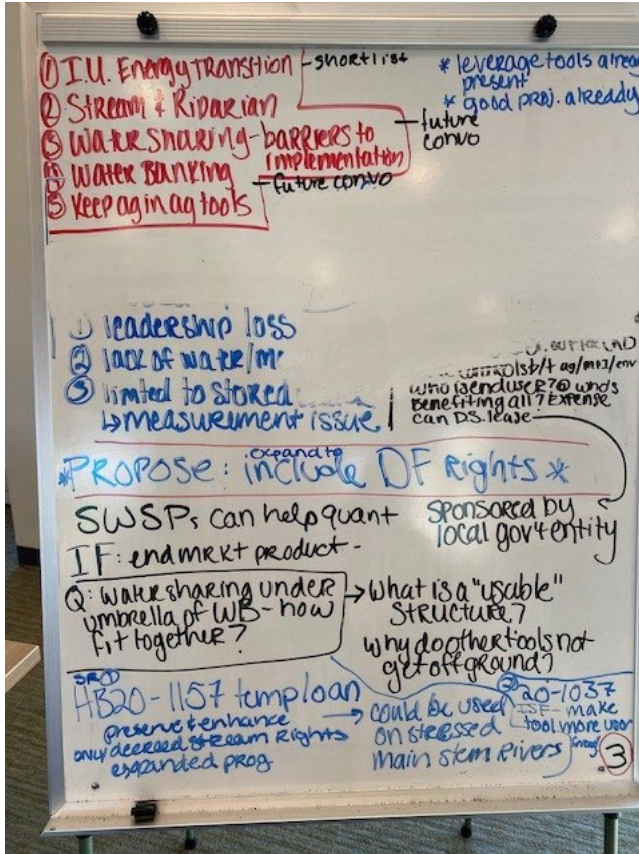 ① I.U. Energy Transition - shortlist
② Stream & Riparian
③ Water sharing - barriers to implementation
- future convo
④ Water Banking
- future convo
⑤ Keep ag in ag tools
* leverage tools alrea
present
* good proj. already
① leadership loss
② lack of water/m
③ limited to stored
↳ measurement issue
b/t ag/m&I/env
who is end user? @ who's
benefiting all? Expense
can D.S. lease
sponsored by
local gov't entity
*PROPOSE: expand to include DF Rights *
SWSPs can help quant
IF: end mrkt product -
Q: water sharing under
umbrella of WB - how
fit together?
→ What is a "usable"
structure?
Why do other tools not
get off ground?
SR ①
HB20-1157 temp loan
preserve & enhance
only decreed stream Rights
expanded prog
→ could be used
on stressed
main stem Rivers
② 20-1037
ISF - make
tool more
③